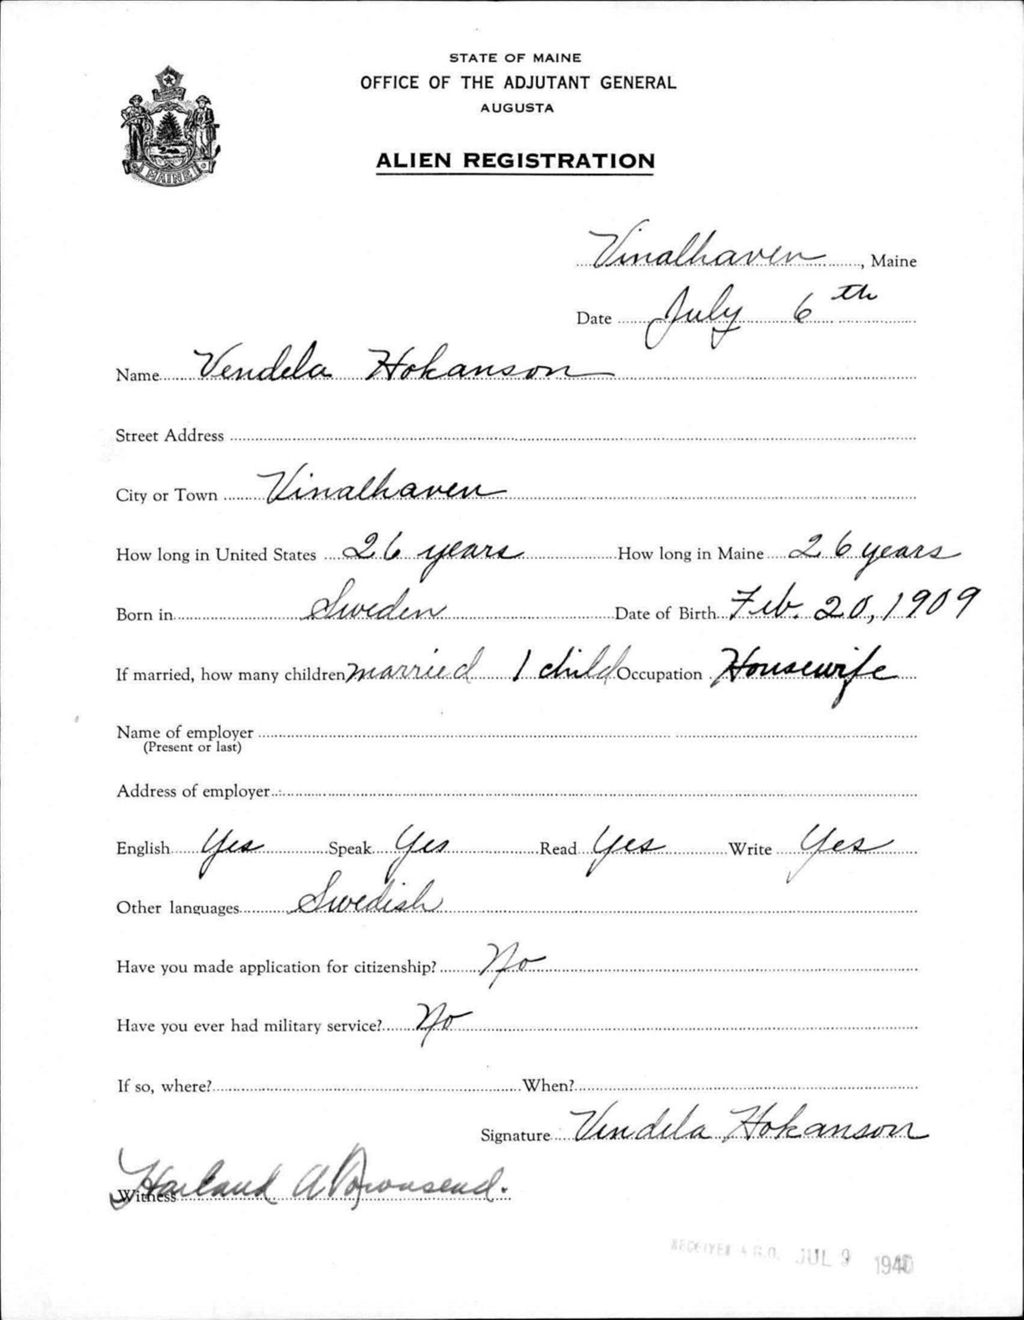 STATE OF MAINE
OFFICE OF THE ADJUTANT GENERAL
AUGUSTA
ALIEN REGISTRATION
MAINE
Vinalhaven, Maine
Date July 6th
Name Vendela Hokanson
Street Address
City or Town Vinalhaven
How long in United States 26 years How long in Maine 26 years
Born in Sweden Date of Birth Feb. 20, 1909
If married, how many children married 1 child Occupation Housewife
Name of employer
(Present or last)
Address of employer
English Yes Speak Yes Read Yes Write Yes
Other languages Swedish
Have you made application for citizenship? No
Have you ever had military service? No
If so, where? When?
Signature Vendela Hokanson
Witness Harland A Townsend.
RECEIVED A.G.O. JUL 9 1940